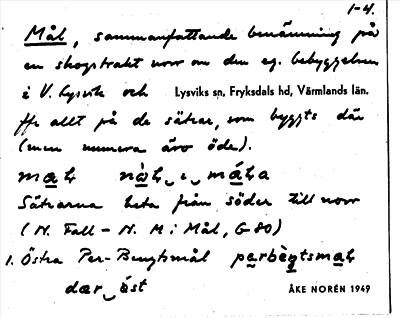 1-4.
Mål, sammanfattande benämning på
en skogstrakt norr om den eg. bebyggelsen
i V. Lysvik och Lysviks sn, Fryksdals hd, Värmlands län.
ffr allt på de sätrar, som byggts där
(men numera äro öde).
Sätrarna heta från söder till norr
(N. Fall – N. M i Mål, G-80)
1. Östra Per-Bengtsmål
ÅKE NORÉN 1949